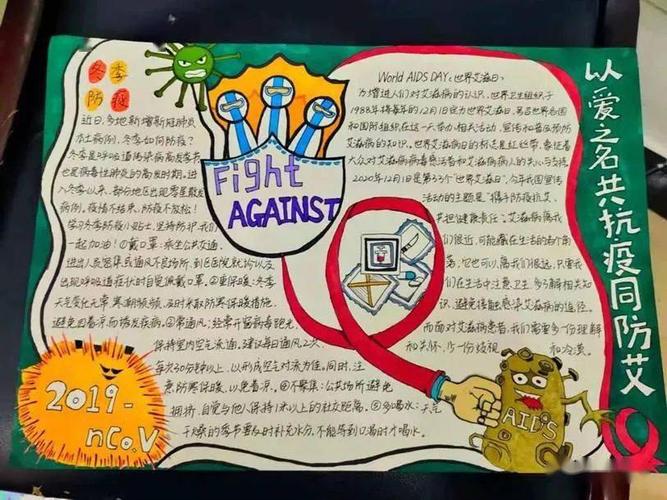 冬季
防疫
近日,多地新增新冠肺炎
本土病例,冬季如何防疫?
冬季是呼吸道传染病高发季节
也是病毒性肺炎的高发时期。进
入冬季以来,部分地区出现零星散发
病例。疫情不结束,防疫不放松!
学习冬季防疫小贴士,坚持防护,我们
一起加油!①戴口罩:乘坐公共交通、
进出人员密集或通风不良场所、到医院就诊以及
出现呼吸道症状时自觉佩戴口罩。②重保暖:冬季
天气变化无常,寒潮频频,及时采取防寒保暖措施,
避免因着凉而诱发疾病。③常通风:经常开窗病毒跑光,
保持室内空气流通,建议每日通风2次,
每次30分钟以上,以形成空气对流为佳。同时,注
意防寒保暖,以免着凉。④不聚集:公共场所避免
拥挤,自觉与他人保持1米以上的社交距离。⑤多喝水:天气
干燥的冬季需及时补充水分,不能等到口渴时才喝水。
2019-
nCo.V
Fight
AGAINST
World AIDS DAY:世界艾滋日:
为增进人们对艾滋病的认识,世界卫生组织于
1988年将每年的12月1日定为世界艾滋日,号召世界各国
和国际组织在这一天举办相关活动,宣传和普及预防
艾滋病的知识。世界艾滋病日的标志是红丝带,象征着
大众对艾滋病病毒感染者和艾滋病病人的关心与支持。
2020年12月1日是第33个"世界艾滋日",今年我国宣传
活动的主题是"携手防疫抗艾,
共担健康责任"。艾滋病离我
们很近,可能藏在生活的各个角
落,它也可以离我们很远,只要我
们在生活中注意卫生,多了解相关知
识,避免接触感染艾滋病的途径。
而面对艾滋病患者,我们需要多一份理解
和关怀,少一份歧视和冷漠。
AIDS
以爱之名共抗疫同防艾